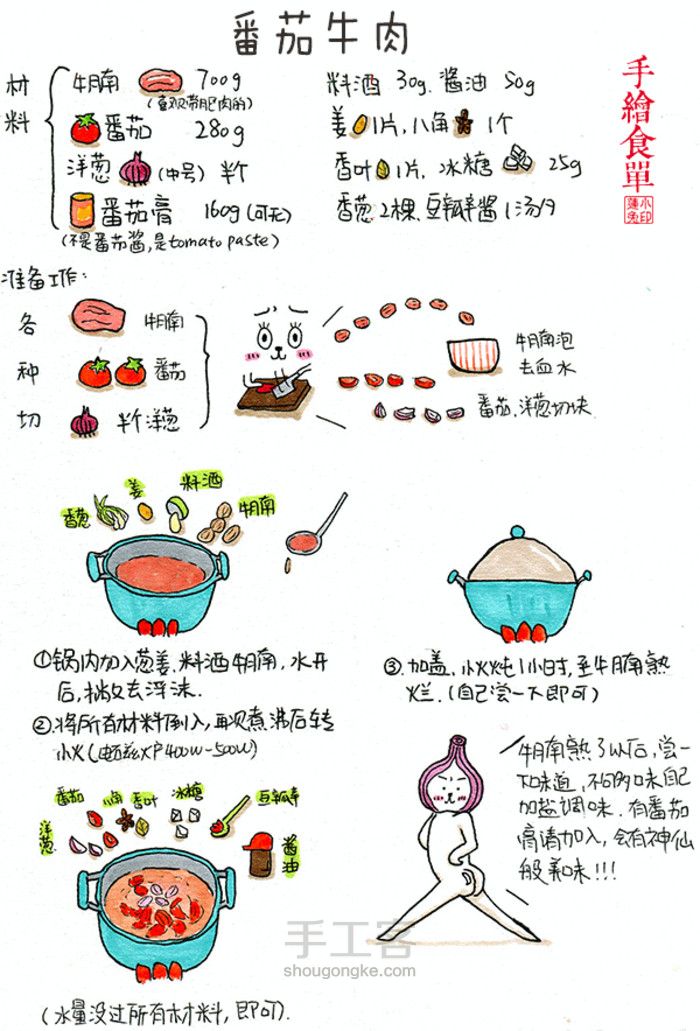 番茄牛肉
手繪食單
小蓮兔印
材料
牛腩 700g
(喜欢带肥肉的)
番茄 280g
洋葱 (中号) 半个
番茄膏 160g (可无)
(不是番茄酱,是tomato paste)
料酒 30g. 酱油 50g
姜 1片, 八角 1个
香叶 1片, 冰糖 25g
香葱 2棵, 豆瓣酱 1汤勺
准备工作:
各种切
牛腩
番茄
半个洋葱
牛腩泡
去血水
番茄、洋葱切块
香葱
姜
料酒
牛腩
①锅内加入葱姜、料酒牛腩, 水开
后, 撇去浮沫.
②将所有材料倒入, 再次煮沸后转
小火(电磁炉400W-500W)
③加盖, 小火炖1小时, 至牛腩熟
烂. (自己尝一下即可)
番茄
八角
香叶
冰糖
豆瓣酱
洋葱
酱油
(水量没过所有材料, 即可).
牛腩熟了以后, 尝一
下味道, 不够味自己
加盐调味. 有番茄
膏请加入, 会有神仙
般美味!!!
手工客
shougongke.com